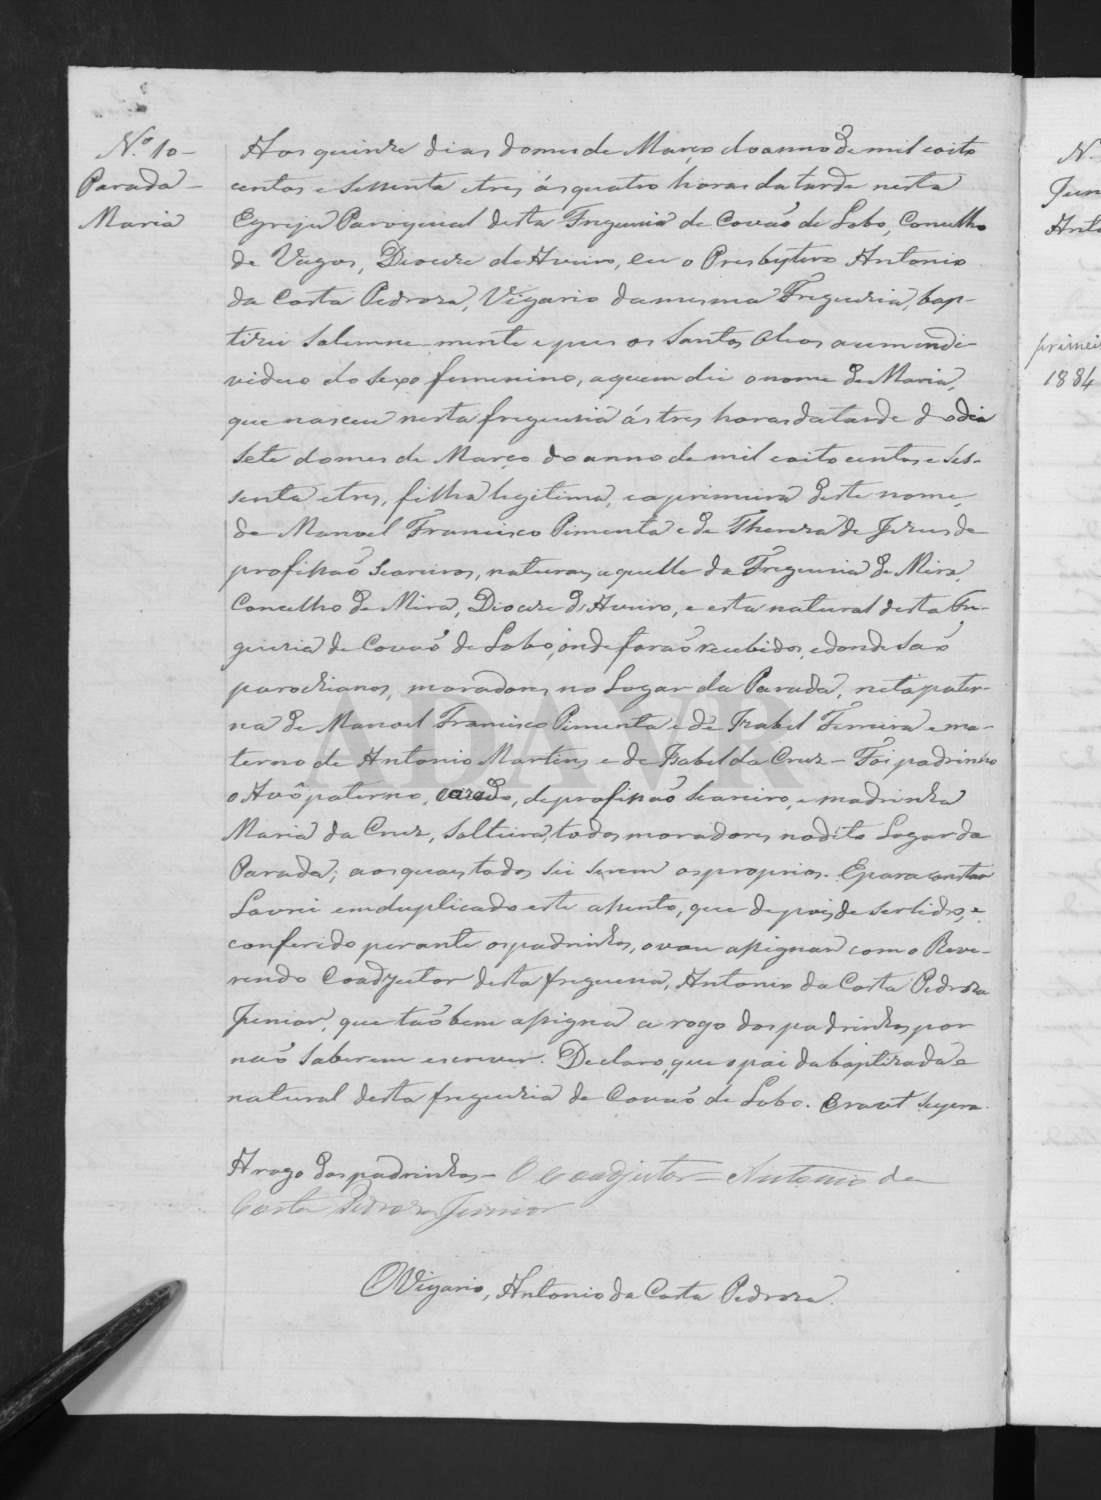 N.º 10-
Parada-
Maria
Aos quinze dias do mes de Março do anno de mil oito
centos e sessenta e tres, ás quatro horas da tarde nesta
Egreja Parochial desta Freguesia de Covaõ de Lobo, Concelho
de Vagos, Diocese de Aveiro, eu o Presbytero Antonio
da Costa Pedroza, Vigario da mesma Freguesia, bap-
tizei solemne-mente e pus os Santos Oleos a um indi-
viduo do sexo femenino, a quem dei o nome de Maria,
que nasceu nesta freguesia ás tres horas da tarde do dia
sete do mes de Março do anno de mil e oito centos e ses-
senta e tres, filha legitima, e a primeira deste nome,
de Manoel Francisco Pimenta e de Thereza de Jezus de
profissaõ Seareiros, naturaes aquelle da Freguesia de Mira,
Concelho de Mira, Diocese de Aveiro, e esta natural desta Fre-
guesia de Covaõ de Lobo, onde foraõ recebidos, e donde saõ
parochianos, moradores no Logar da Parada, neta pater-
na de Manoel Francisco Pimenta e de Izabel Ferreira e ma-
terno de Antonio Martins e de Izabel da Cruz - Foi padrinho
o Avô paterno, cazado, de profissaõ Seareiro, e madrinha
Maria da Cruz, Solteira, todos moradores no dito Logar da
Parada; aos quaes todos sei serem os proprios. E para constar
Lavrei em duplicado este assento, que depois de ser lido, e
conferido perante os padrinhos, o vou assignar com o Reve-
rendo Coadjutor desta freguesia, Antonio da Costa Pedroza
Junior, que taõbem assigna a rogo dos padrinhos por
naõ saberem escrever. Declaro, que o pai da baptizada e
natural desta freguesia de Covaõ de Lobo. Era ut supra.
A rogo dos padrinhos - O Coadjutor = Antonio da
Costa Pedroza Junior
O Vigario, Antonio da Costa Pedroza.
ADAVR
N
Jun
Anto
primeir
1884